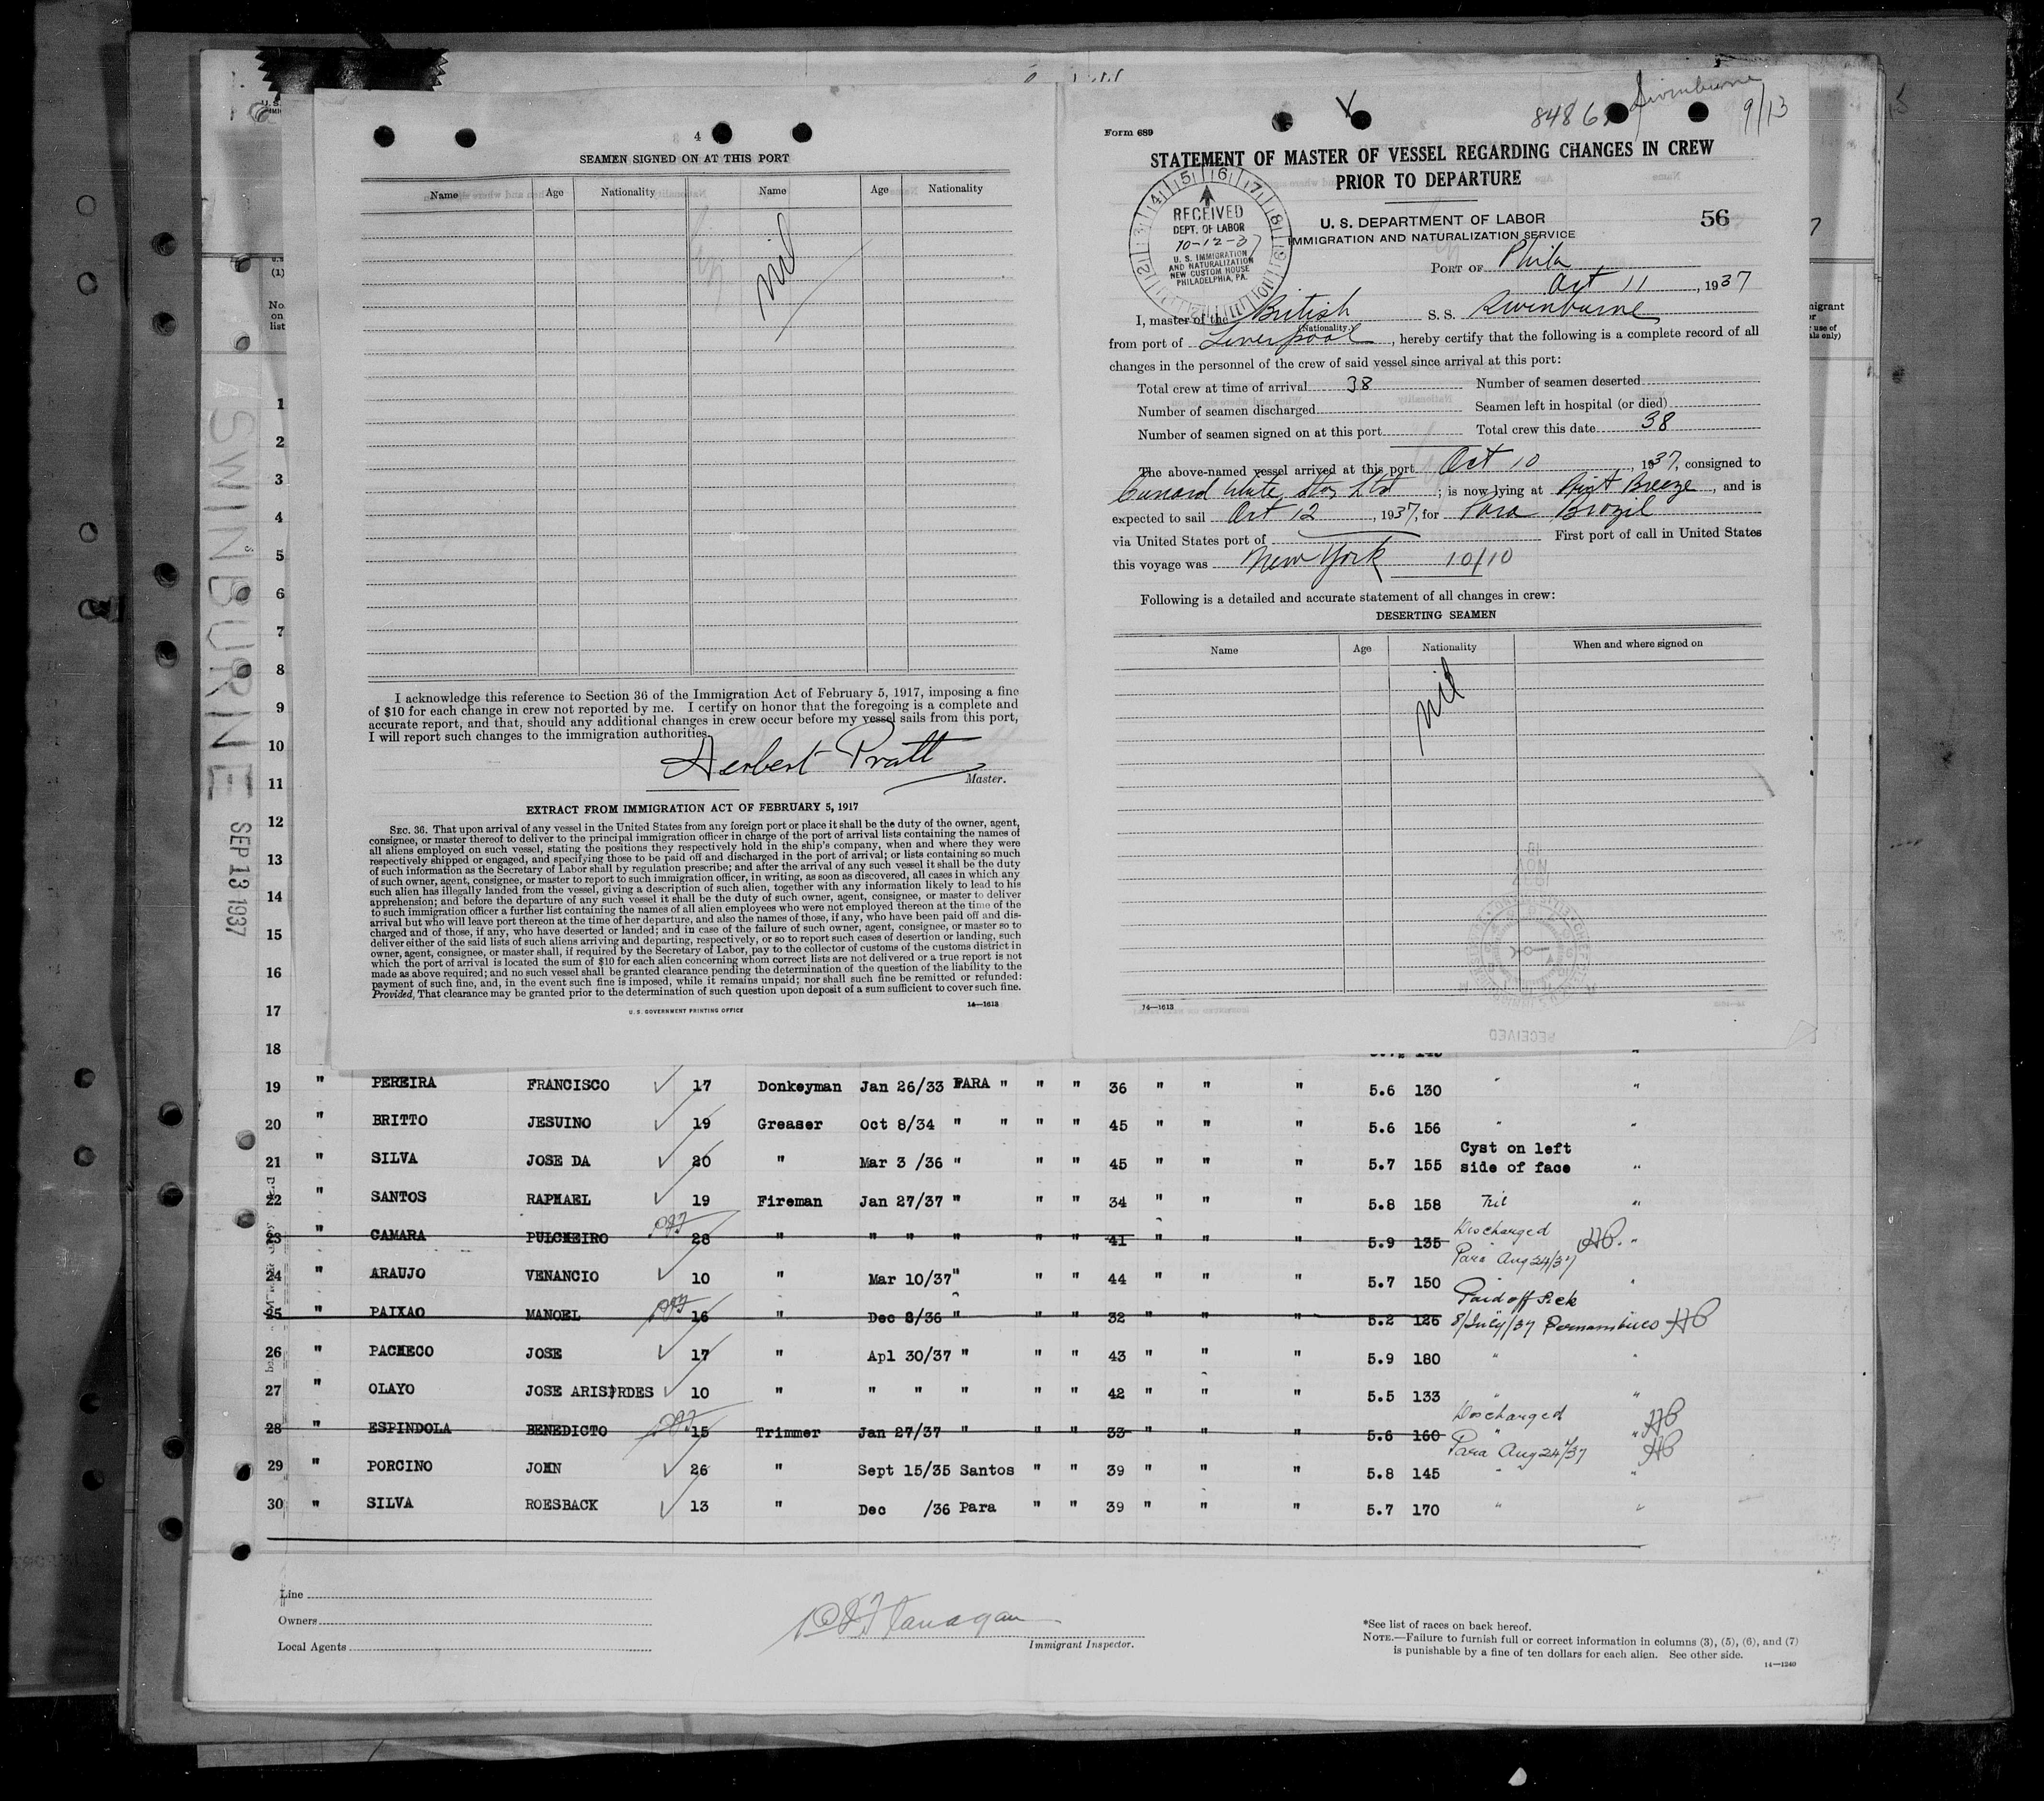 4
SEAMEN SIGNED ON AT THIS PORT
Name Age Nationality Name Age Nationality
nil
I acknowledge this reference to Section 36 of the Immigration Act of February 5, 1917, imposing a fine
of $10 for each change in crew not reported by me. I certify on honor that the foregoing is a complete and
accurate report, and that, should any additional changes in crew occur before my vessel sails from this port,
I will report such changes to the immigration authorities.
Herbert Pratt
Master.
EXTRACT FROM IMMIGRATION ACT OF FEBRUARY 5, 1917
SEC. 36. That upon arrival of any vessel in the United States from any foreign port or place it shall be the duty of the owner, agent,
consignee, or master thereof to deliver to the principal immigration officer in charge of the port of arrival lists containing the names of
all aliens employed on such vessel, stating the positions they respectively hold in the ship's company, when and where they were
respectively shipped or engaged, and specifying those to be paid off and discharged in the port of arrival; or lists containing so much
of such information as the Secretary of Labor shall by regulation prescribe; and after the arrival of any such vessel it shall be the duty
of such owner, agent, consignee, or master to report to such immigration officer, in writing, as soon as discovered, all cases in which any
such alien has illegally landed from the vessel, giving a description of such alien, together with any information likely to lead to his
apprehension; and before the departure of any such vessel it shall be the duty of such owner, agent, consignee, or master to deliver
to such immigration officer a further list containing the names of all alien employees who were not employed thereon at the time of the
arrival but who will leave port thereon at the time of her departure, and also the names of those, if any, who have been paid off and dis-
charged and of those, if any, who have deserted or landed; and in case of the failure of such owner, agent, consignee, or master so to
deliver either of the said lists of such aliens arriving and departing, respectively, or so to report such cases of desertion or landing, such
owner, agent, consignee, or master shall, if required by the Secretary of Labor, pay to the collector of customs of the customs district in
which the port of arrival is located the sum of $10 for each alien concerning whom correct lists are not delivered or a true report is not
made as above required; and no such vessel shall be granted clearance pending the determination of the question of the liability to the
payment of such fine, and, in the event such fine is imposed, while it remains unpaid; nor shall such fine be remitted or refunded:
Provided, That clearance may be granted prior to the determination of such question upon deposit of a sum sufficient to cover such fine.
14—1613
U. S. GOVERNMENT PRINTING OFFICE
Swinburne
9/13
Form 689
STATEMENT OF MASTER OF VESSEL REGARDING CHANGES IN CREW
PRIOR TO DEPARTURE
RECEIVED
DEPT. OF LABOR
10-12-37
U. S. IMMIGRATION
AND NATURALIZATION
NEW CUSTOM HOUSE
PHILADELPHIA, PA.
U. S. DEPARTMENT OF LABOR
IMMIGRATION AND NATURALIZATION SERVICE
56
PORT OF Phila
Oct 11, 1937
I, master of the British S. S. Swinburne
(Nationality)
from port of Liverpool, hereby certify that the following is a complete record of all
changes in the personnel of the crew of said vessel since arrival at this port:
Total crew at time of arrival 38 Number of seamen deserted
Number of seamen discharged Seamen left in hospital (or died)
Number of seamen signed on at this port Total crew this date 38
The above-named vessel arrived at this port Oct 10, 1937, consigned to
Cunard White Star Ltd; is now lying at Point Breeze, and is
expected to sail Oct 12, 1937, for Para Brazil
via United States port of First port of call in United States
this voyage was New York 10/10
Following is a detailed and accurate statement of all changes in crew:
DESERTING SEAMEN
Name Age Nationality When and where signed on
nil
14—1613
SWINBURNE SEP 13 1937
No.
on
list
1
2
3
4
5
6
7
8
9
10
11
12
13
14
15
16
17
18
19 " PEREIRA FRANCISCO 17 Donkeyman Jan 26/33 PARA " " " 36 " " " 5.6 130 " "
20 " BRITTO JESUINO 19 Greaser Oct 8/34 " " " " 45 " " " 5.6 156 " "
21 " SILVA JOSE DA 20 " Mar 3 /36 " " " 45 " " " 5.7 155 Cyst on left side of face "
22 " SANTOS RAPHAEL 19 Fireman Jan 27/37 " " " 34 " " " 5.8 158 Nil "
23 " CAMARA PULCHEIRO 28 " " " " " " 41 " " " 5.9 135 Discharged Para Aug 24/37 HP. "
24 " ARAUJO VENANCIO 10 " Mar 10/37 " " " 44 " " " 5.7 150 "
25 " PAIXAO MANOEL 16 " Dec 8/36 " " " 32 " " " 5.2 126 Paid off Sick 8/July/37 Pernambuco HP
26 " PACHECO JOSE 17 " Apl 30/37 " " " 43 " " " 5.9 180 " "
27 " OLAYO JOSE ARISIRDES 10 " " " " " " 42 " " " 5.5 133 " "
28 " ESPINDOLA BENEDICTO 15 Trimmer Jan 27/37 " " " 33 " " " 5.6 160 Discharged Para Aug 24/37 " HP HP
29 " PORCINO JOHN 26 " Sept 15/35 Santos " " 39 " " " 5.8 145 " "
30 " SILVA ROESBACK 13 " Dec /36 Para " " 39 " " " 5.7 170 " "
Line
Owners
Local Agents
Flanagan
Immigrant Inspector.
*See list of races on back hereof.
NOTE.—Failure to furnish full or correct information in columns (3), (5), (6), and (7)
is punishable by a fine of ten dollars for each alien. See other side.
14—1240